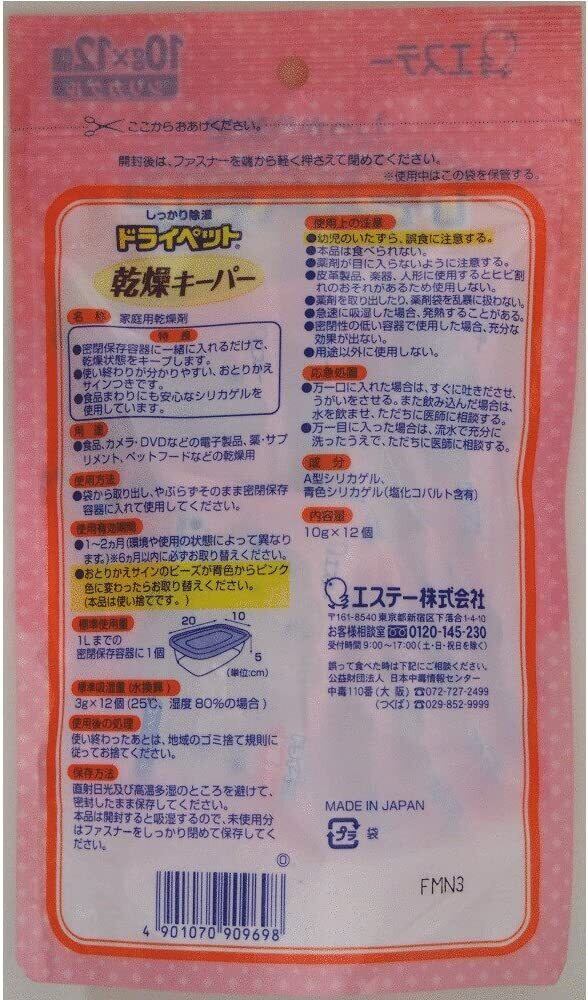 エステー
10g×12個
シリカゲル
ここからおあけください。
開封後は、ファスナーを端から軽く押さえて閉めてください。
※使用中はこの袋を保管する。
しっかり除湿
ドライペット
乾燥キーパー
名 称 家庭用乾燥剤
特 長
●密閉保存容器に一緒に入れるだけで、
乾燥状態をキープします。
●使い終わりが分かりやすい、おとりかえ
サインつきです。
●食品まわりにも安心なシリカゲルを
使用しています。
用 途
●食品、カメラ・DVDなどの電子製品、薬・サプ
リメント、ペットフードなどの乾燥用
使用方法
●袋から取り出し、やぶらずそのまま密閉保存
容器に入れて使用してください。
使用有効期間
●1~2ヵ月(環境や使用の状態によって異なり
ます。)※6ヵ月以内に必ずお取り替えください。
●おとりかえサインのビーズが青色からピンク
色に変わったらお取り替えください。
(本品は使い捨てです。)
標準使用量
1Lまでの
密閉保存容器に1個
20
10
5
(単位:cm)
標準吸湿量(水換算)
3g×12個(25℃、湿度80%の場合)
使用後の処理
使い終わったあとは、地域のゴミ捨て規則に
従ってお捨てください。
保存方法
直射日光及び高温多湿のところを避けて、
密封したまま保存してください。
本品は開封すると吸湿するので、未使用分
はファスナーをしっかり閉めて保存してく
ださい。
使用上の注意
●幼児のいたずら、誤食に注意する。
●本品は食べられない。
●薬剤が目に入らないように注意する。
●皮革製品、楽器、人形に使用するとヒビ割
れのおそれがあるため使用しない。
●薬剤を取り出したり、薬剤袋を乱暴に扱わない。
●急速に吸湿した場合、発熱することがある。
●密閉性の低い容器で使用した場合、充分な
効果が出ない。
●用途以外に使用しない。
応急処置
●万一口に入れた場合は、すぐに吐きださせ、
うがいをさせる。また飲み込んだ場合は、
水を飲ませ、ただちに医師に相談する。
●万一目に入った場合は、流水で充分に
洗ったうえで、ただちに医師に相談する。
成 分
A型シリカゲル、
青色シリカゲル(塩化コバルト含有)
内容量
10g×12個
エステー株式会社
〒161-8540 東京都新宿区下落合1-4-10
お客様相談室 0120-145-230
受付時間 9:00~17:00(土・日・祝日を除く)
誤って食べた時は下記にご相談ください。
公益財団法人 日本中毒情報センター
中毒110番(大 阪)☎072-727-2499
(つくば)☎029-852-9999
MADE IN JAPAN
プラ 袋
FMN3
4 901070 909698